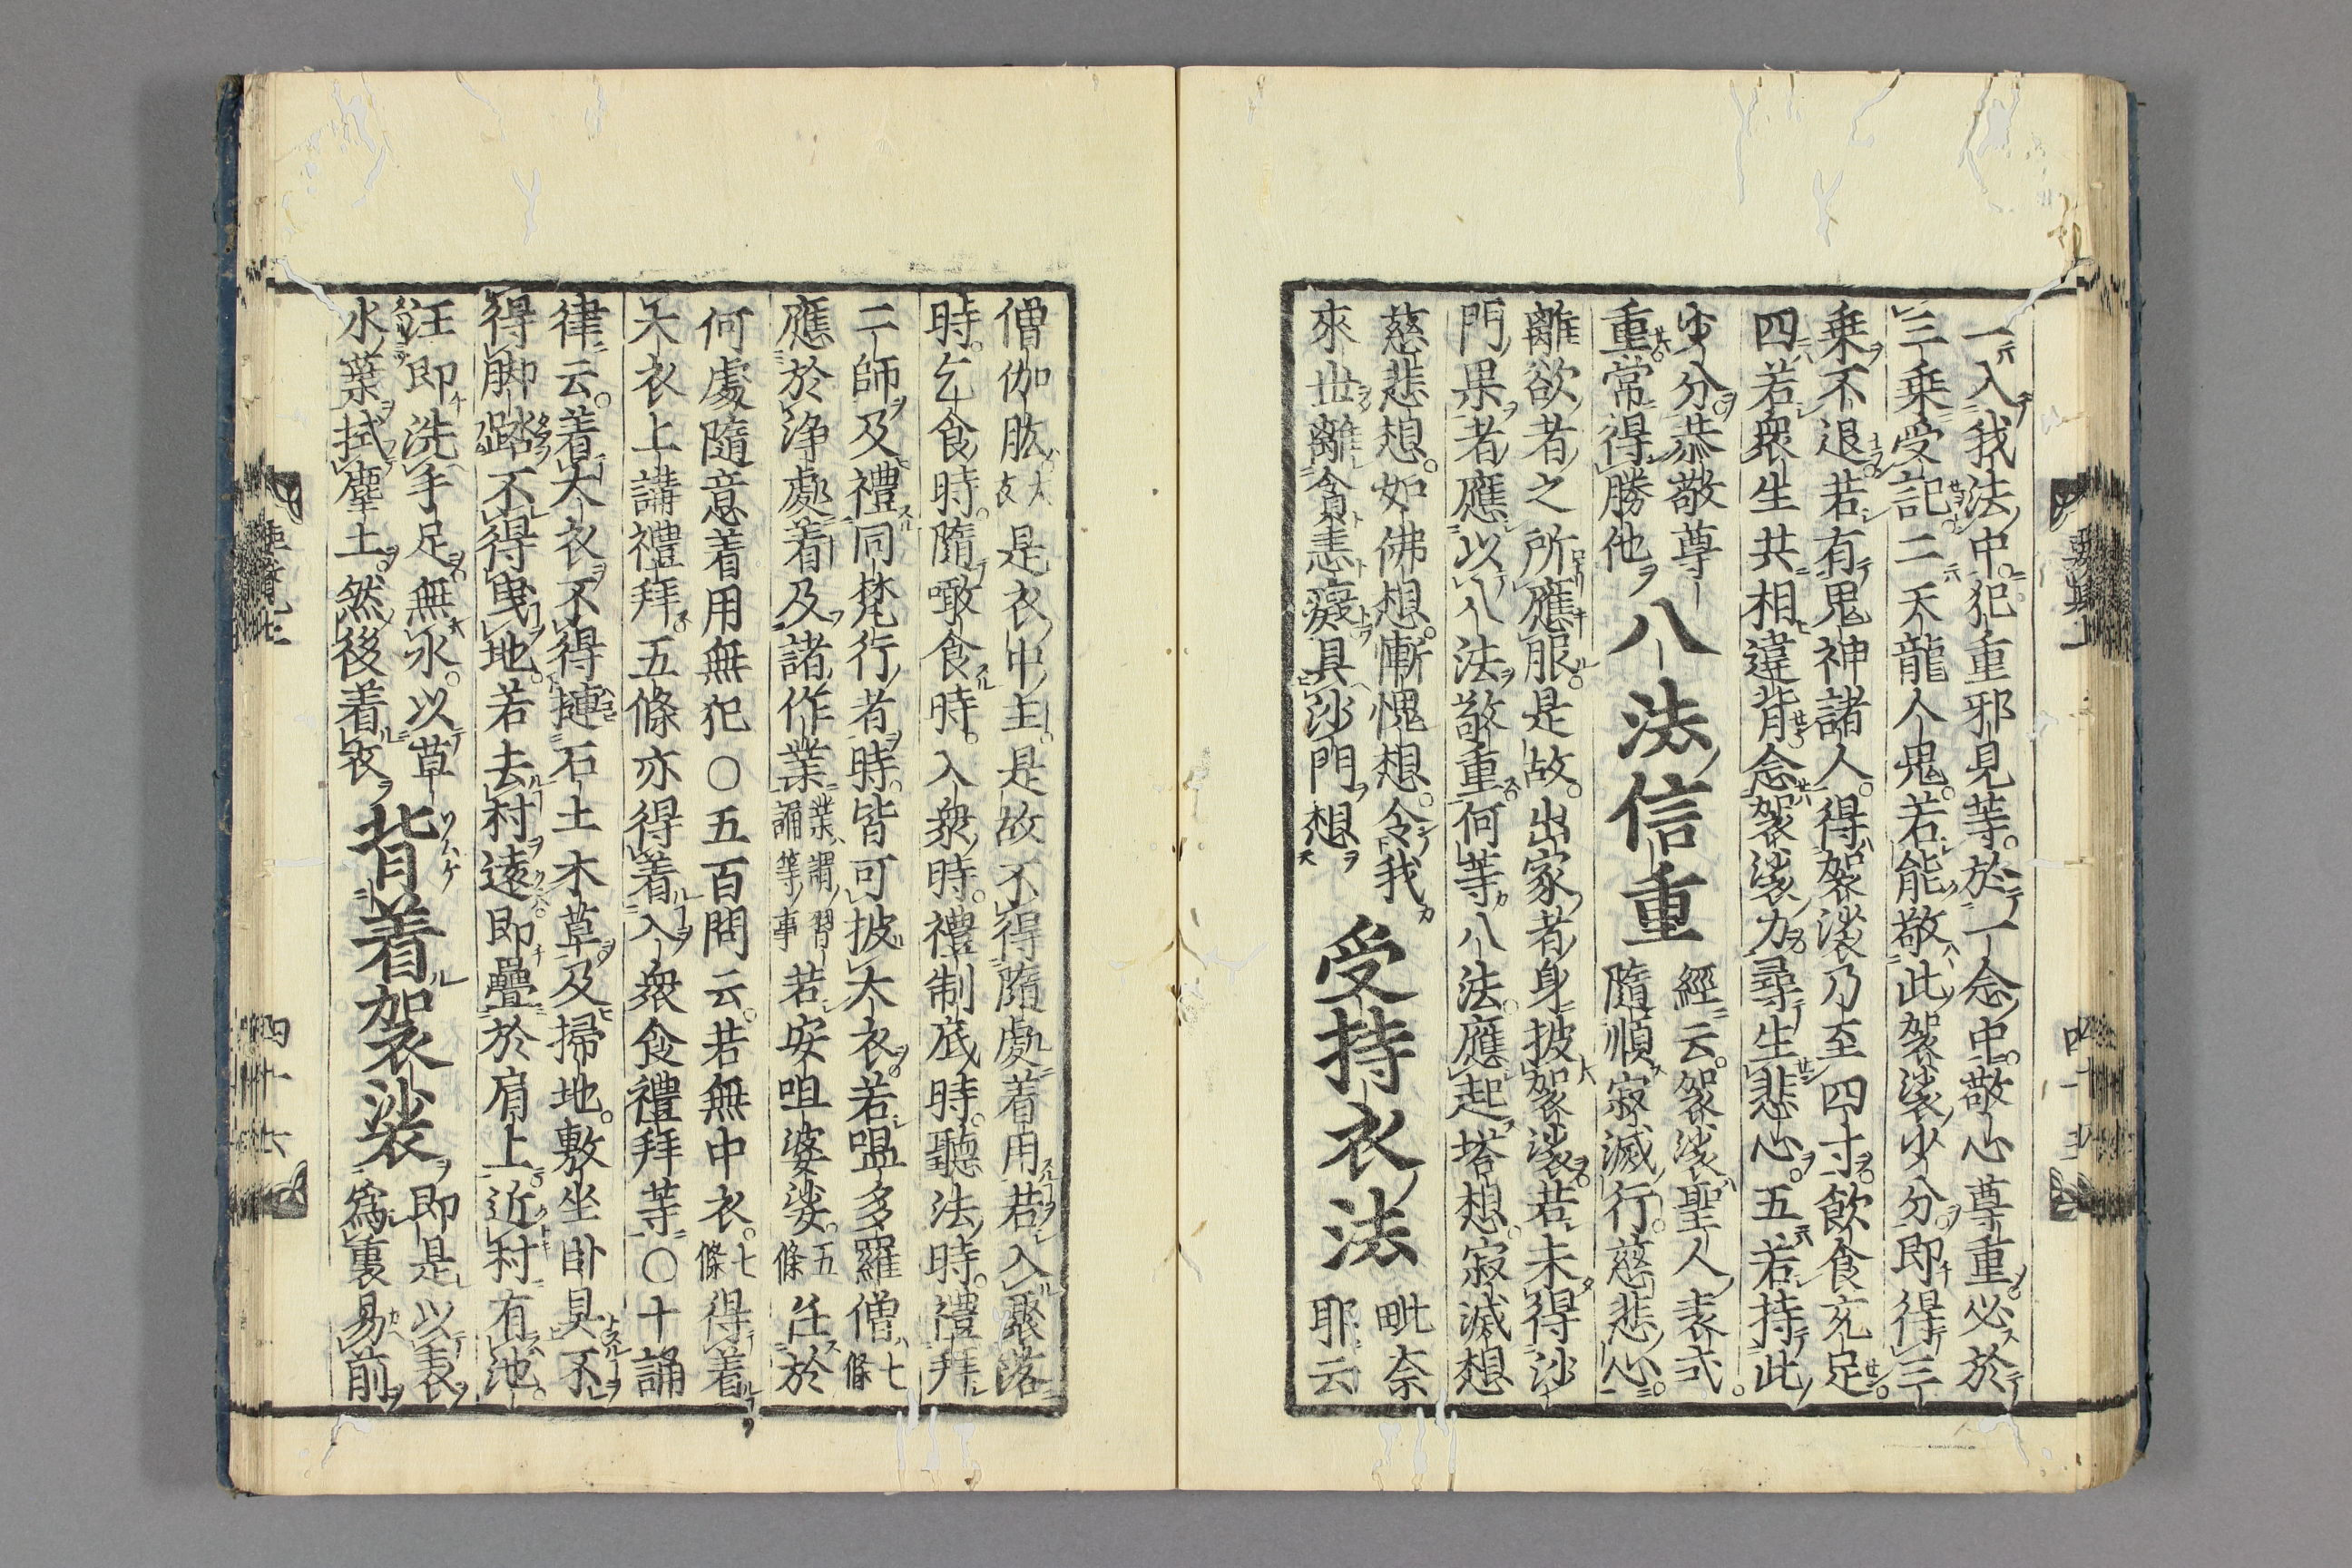 一入我法中。犯重邪見等。於一念中。敬心尊重。必於
三乗受記二天龍人鬼。若能敬此袈裟少分。即得三
乗不退若有鬼神諸人。得袈裟乃至四寸。飲食充足
四若衆生共相違背念袈裟力尋生悲心。五若持此
少分。恭敬尊
重常得勝他
八法信重
經云。袈裟聖人表式。
隨順寂滅行。慈悲心。
離欲者之所應服。是故。出家者身披袈裟。若未得沙
門果者。應以八法敬重何等八法。應起塔想。寂滅想
慈悲想。如佛想。慚愧想。令我
來世離貪恚癡具沙門想
受持衣法
毗奈
耶云
僧伽肱大衣是衣中主。是故不得隨處着用若入聚落
時。乞食時。隨噉食時。入衆時。禮制底時。聽法時。禮拜
二師及禮同梵行者時。皆可披大衣。若嗢多羅僧七條
應於浄處着及諸作業業謂習誦等事若安咀婆娑。五條任於
何處隨意着用無犯○五百問云。若無中衣。七條得着
大衣上講禮拜。五條亦得着入衆食禮拜等○十誦
律云。着大衣不得摙石土木草及掃地。敷坐卧具不
得脚踏不得曳地。若去村遠即疊於肩上。近村有池。
汪即洗手足。無水。以草
水葉拭塵土。然後着衣
背着袈裟
即是以表
為裏易前
四十一
四十六